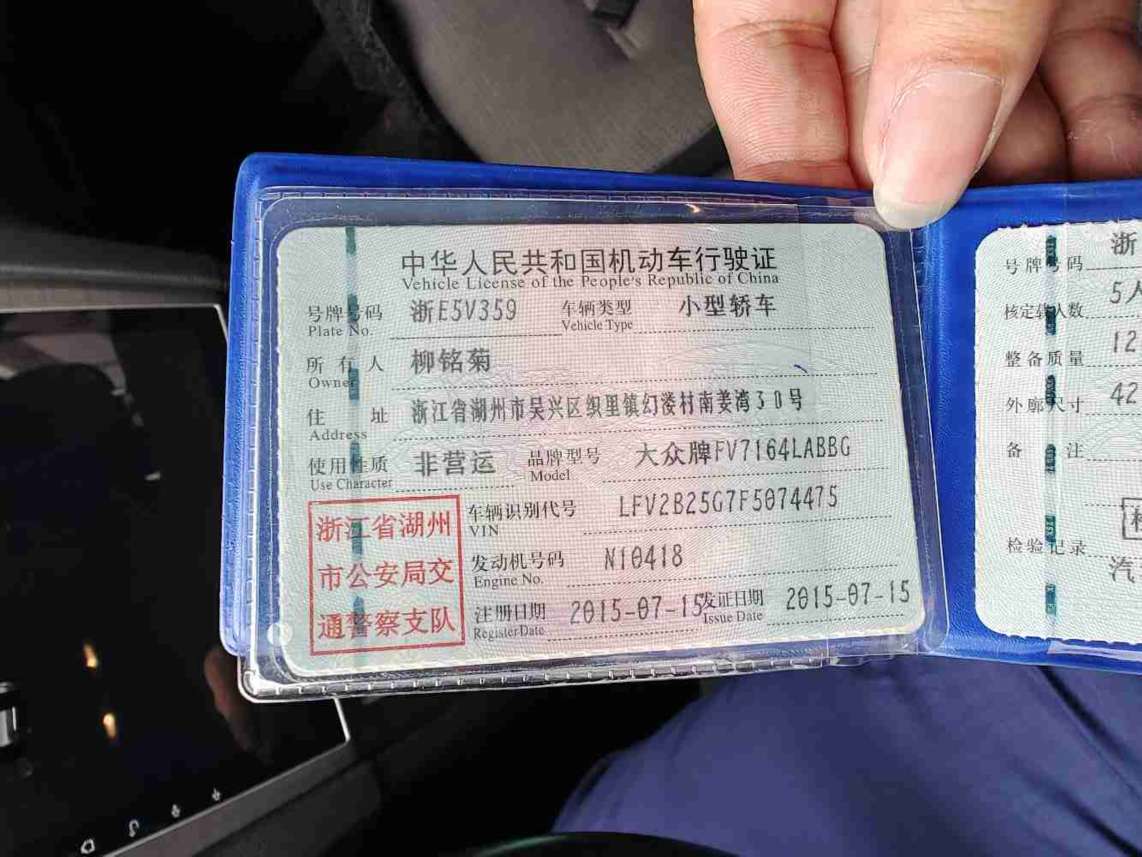 中华人民共和国机动车行驶证
Vehicle License of the People's Republic of China
号牌号码 浙E5V359 车辆类型 小型轿车
Plate No. Vehicle Type
所有人 柳铭菊
Owner
住址 浙江省湖州市吴兴区织里镇幻溇村南姜湾30号
Address
使用性质 非营运 品牌型号 大众牌FV7164LABBG
Use Character Model
浙江省湖州
市公安局交
通警察支队
车辆识别代号 LFV2B25G7F5074475
VIN
发动机号码 N10418
Engine No.
注册日期 2015-07-15 发证日期 2015-07-15
Register Date Issue Date
号牌号码 浙
核定载人数 5人
整备质量 12
外廓尺寸 42
备注
检验记录
汽